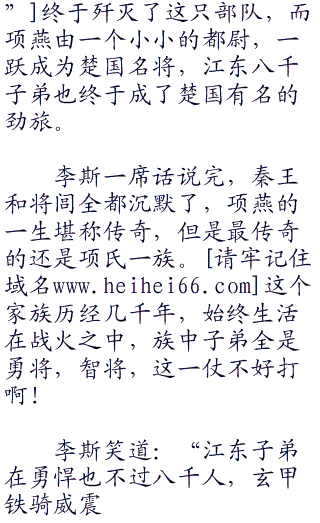 ”]终于歼灭了这只部队，而
项燕由一个小小的都尉，一
跃成为楚国名将，江东八千
子弟也终于成了楚国有名的
劲旅。
李斯一席话说完，秦王
和将闾全都沉默了，项燕的
一生堪称传奇，但是最传奇
的还是项氏一族。[请牢记住
域名www.heihei66.com]这个
家族历经几千年，始终生活
在战火之中，族中子弟全是
勇将，智将，这一仗不好打
啊！
李斯笑道：“江东子弟
在勇悍也不过八千人，玄甲
铁骑威震